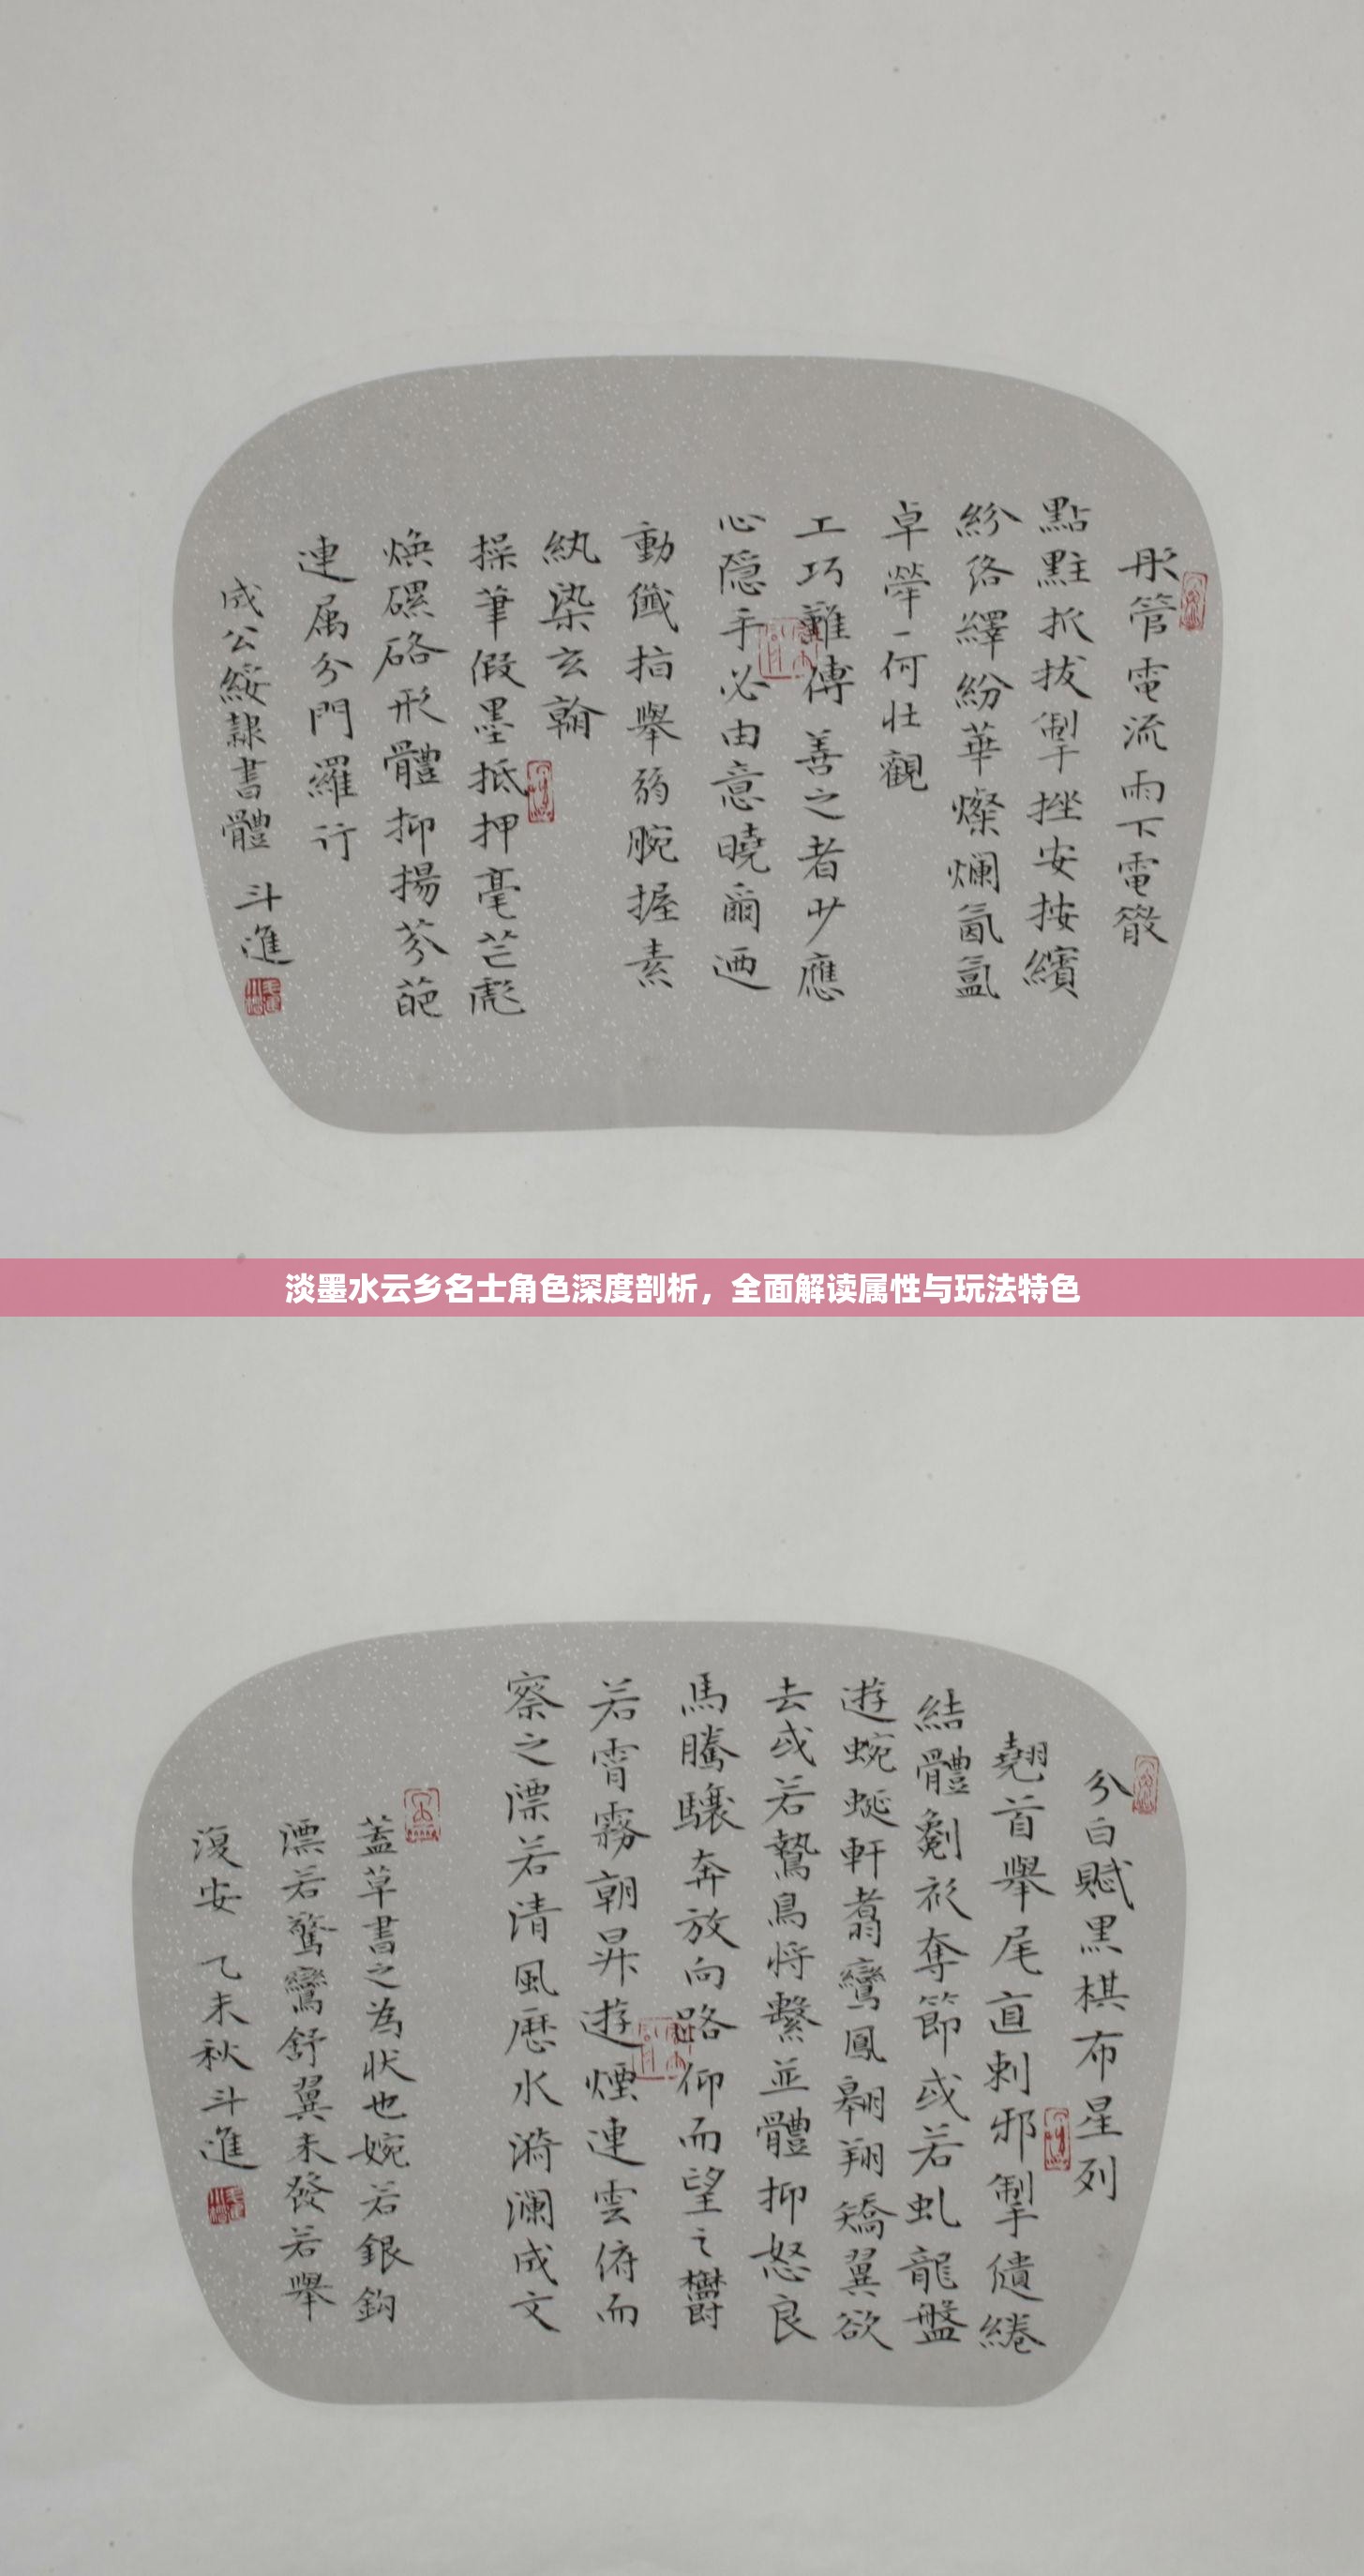 彤管電流雨下電散
點黈抓拔掣挫安按繽
紛絡繹紛華燦爛氤氳
卓犖一何壯觀
工巧難傳善之者少應
心隱手必由意曉爾迺
動纖指舉弱腕握素
紈染玄翰
操筆假墨抵押毫芒彪
煥磥硌形體抑揚芬葩
連属分門羅行
成公綏隸書體 斗進
淡墨水云乡名士角色深度剖析，全面解读属性与玩法特色
分白賦黑棋布星列
翹首舉尾直刺邪掣繾綣
結體劖衫奪節或若虬龍盤
遊蜿蜒軒翥鸞鳳翱翔矯翼欲
去或若鷙鳥将擊並體抑怒良
馬騰驤奔放向路仰而望之鬱
若霄霧朝昇遊煙連雲俯而
察之漂若清風厯水漪澜成文
蓋草書之為狀也婉若銀鈎
漂若驚鸞舒翼未發若舉
復安 乙未秋斗進